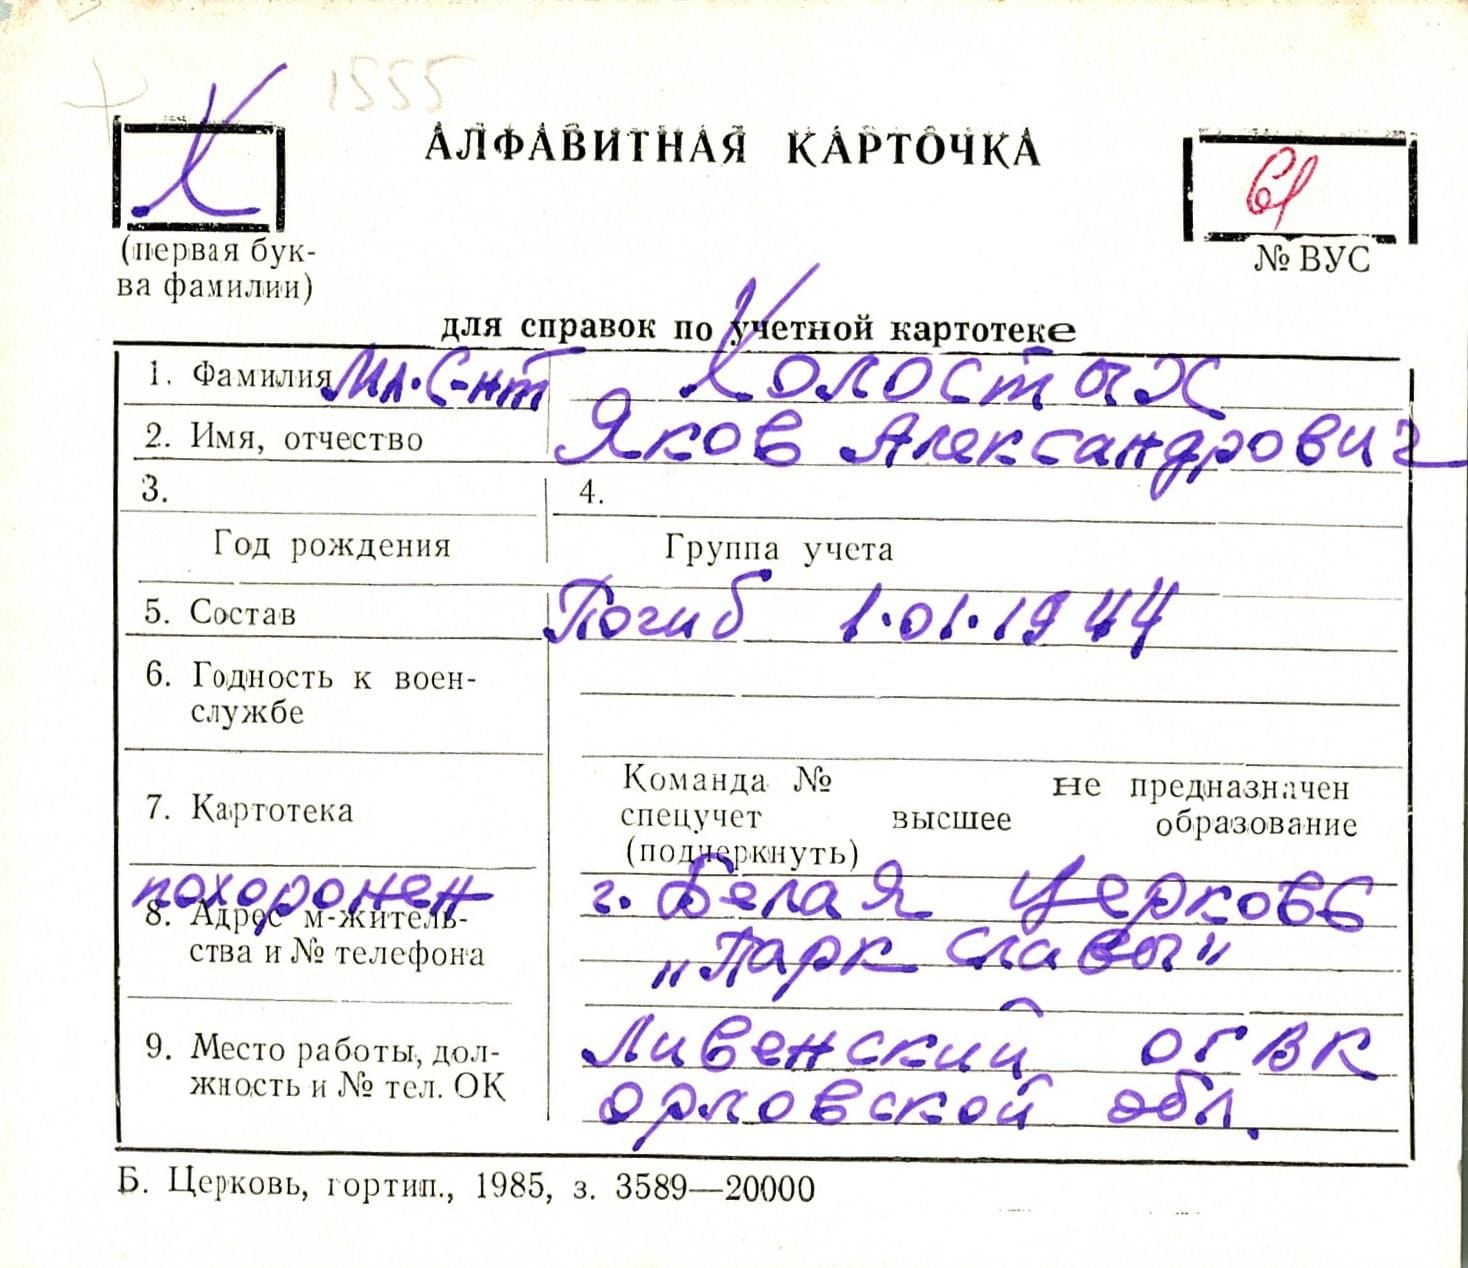 1555
АЛФАВИТНАЯ КАРТОЧКА
Х
61
(первая бук-
ва фамилии)
№ ВУС
для справок по учетной картотеке
1. Фамилия Мл. С-нт Холостых
2. Имя, отчество Яков Александрович
3. 4.
Год рождения Группа учета
5. Состав Погиб 1.01.1944
6. Годность к воен-
службе
7. Картотека
Команда № не предназначен
спецучет высшее образование
(подчеркнуть)
похоронен г. Белая Церковь
8. Адрес м-житель-
ства и № телефона
„Парк Славы"
9. Место работы, дол-
жность и № тел. ОК
Ливенский ОГВК
Орловской обл.
Б. Церковь, гортип., 1985, з. 3589—20000